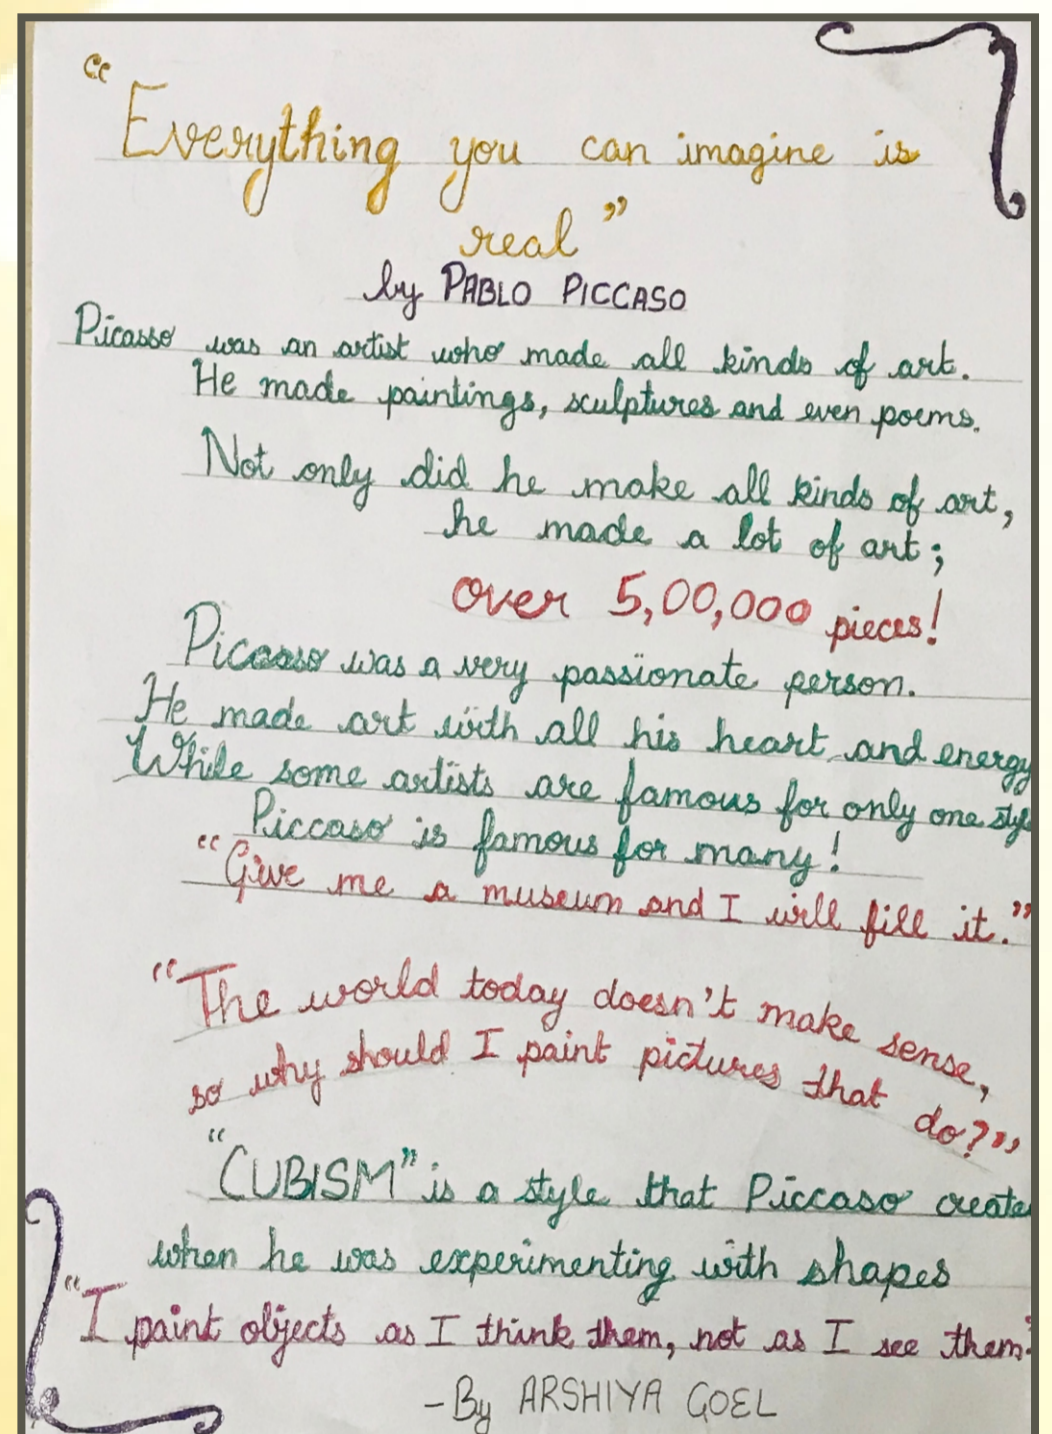 "Everything you can imagine is
real"
by PABLO PICCASO
Picasso was an artist who made all kinds of art.
He made paintings, sculptures and even poems.
Not only did he make all kinds of art,
he made a lot of art;
over 5,00,000 pieces!
Picasso was a very passionate person.
He made art with all his heart and energy
While some artists are famous for only one
Piccaso is famous for many!
"Give me a museum and I will fill it."
"The world today doesn't make sense,
so why should I paint pictures that do?"
"CUBISM" is a style that Piccaso create
when he was experimenting with shapes
"I paint objects as I think them, not as I see them."
-By ARSHIYA GOEL